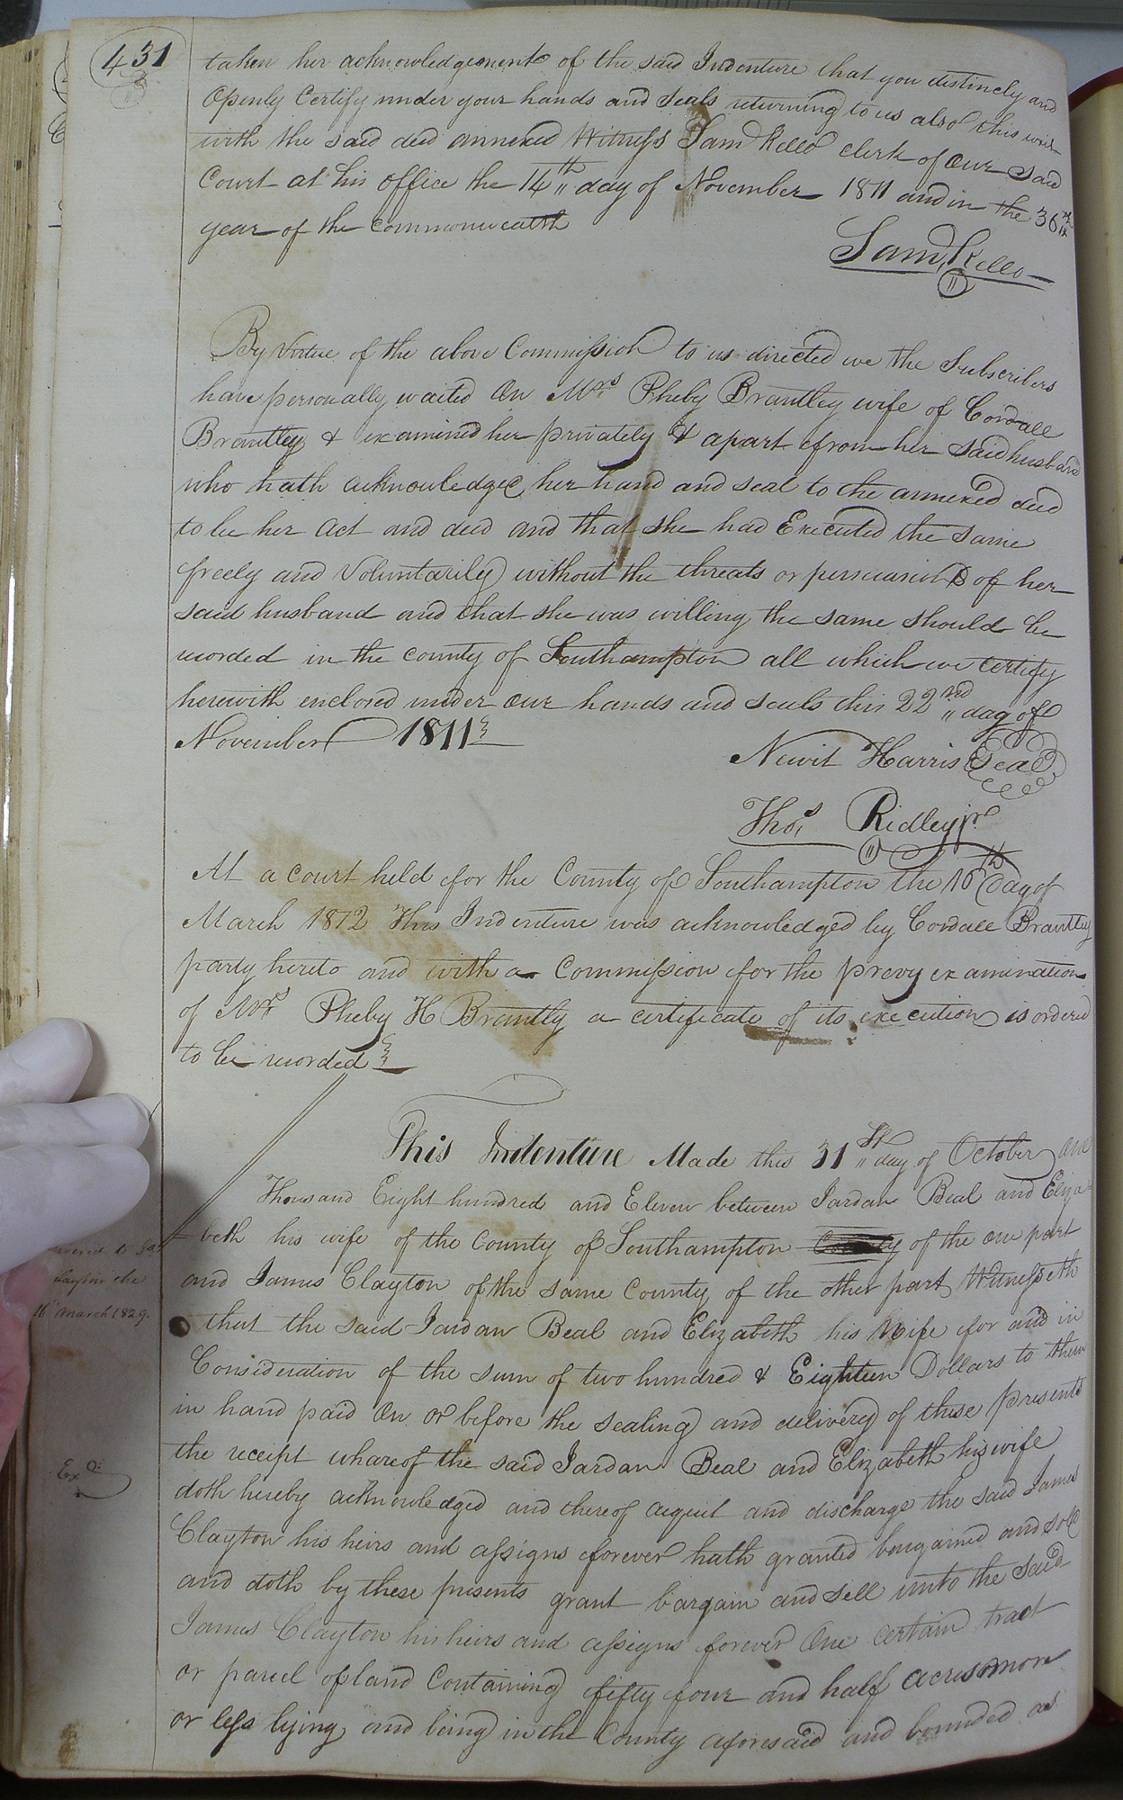 431
taken her acknowledgement of the said Indenture that you distinctly and
Openly Certify under your hands and seals returning to us also this writ
with the said deed annexed Witness Sam Kello clerk of our said
Court at his office the 14th day of November 1811 and in the 36th
year of the Commonwealth
Saml Kello
By Virtue of the above Commission to us directed we the Subscribers
have personally waited On Mrs Pheby Brantley wife of Cordall
Brantley & examined her privately & apart from her said husband
who hath acknowledged her hand and seal to the annexed deed
to be her act and deed and that she had Executed the same
freely and Voluntarily without the threats or persuasion of her
said husband and that she was willing the same should be
recorded in the county of Southampton all which we certify
herewith enclosed under our hands and seals this 22nd day of
November 1811
Newit Harris Seal
Thos Ridley jr
At a court held for the County of Southampton the 16th day of
March 1812 This Indenture was acknowledged by Cordall Brantley
party hereto and with a Commission for the prevy examination
of Mrs Pheby H Brantly a certificate of its execution is ordered
to be recorded
This Indenture Made this 31st day of October one
Thousand Eight hundred and Eleven between Jardan Beal and Eliza-
beth his wife of the County of Southampton County of the one part
and James Clayton of the same County of the other part Witnesseth
that the said Jardan Beal and Elizabeth his Wife for and in
Consideration of the sum of two hundred & Eighteen Dollars to them
in hand paid On or before the sealing and delivery of these presents
the receipt whareof the said Jardan Beal and Elizabeth his wife
doth hereby acknowledged and thereof acquit and discharge the said James
Clayton his heirs and assigns forever hath granted bargained and sold
and doth by these presents grant bargain and sell unto the said
James Clayton his heirs and assigns forever One certain tract
or parcel of land Containing fifty four and half acres more
or less lying and being in the County aforesaid and bounded as
Clayton the
16 March 1829.
Exd